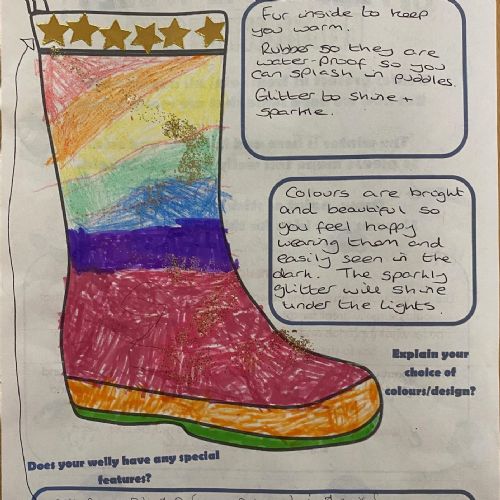 Fur inside to keep
you warm.
Rubber so they are
water-proof so you
can splash in puddles.
Glitter to shine +
sparkle.
Colours are bright
and beautiful so
you feel happy
wearing them and
easily seen in the
dark. The sparkly
glitter will shine
under the lights.
Explain your
choice of
colours/design?
Does your welly have any special
features?